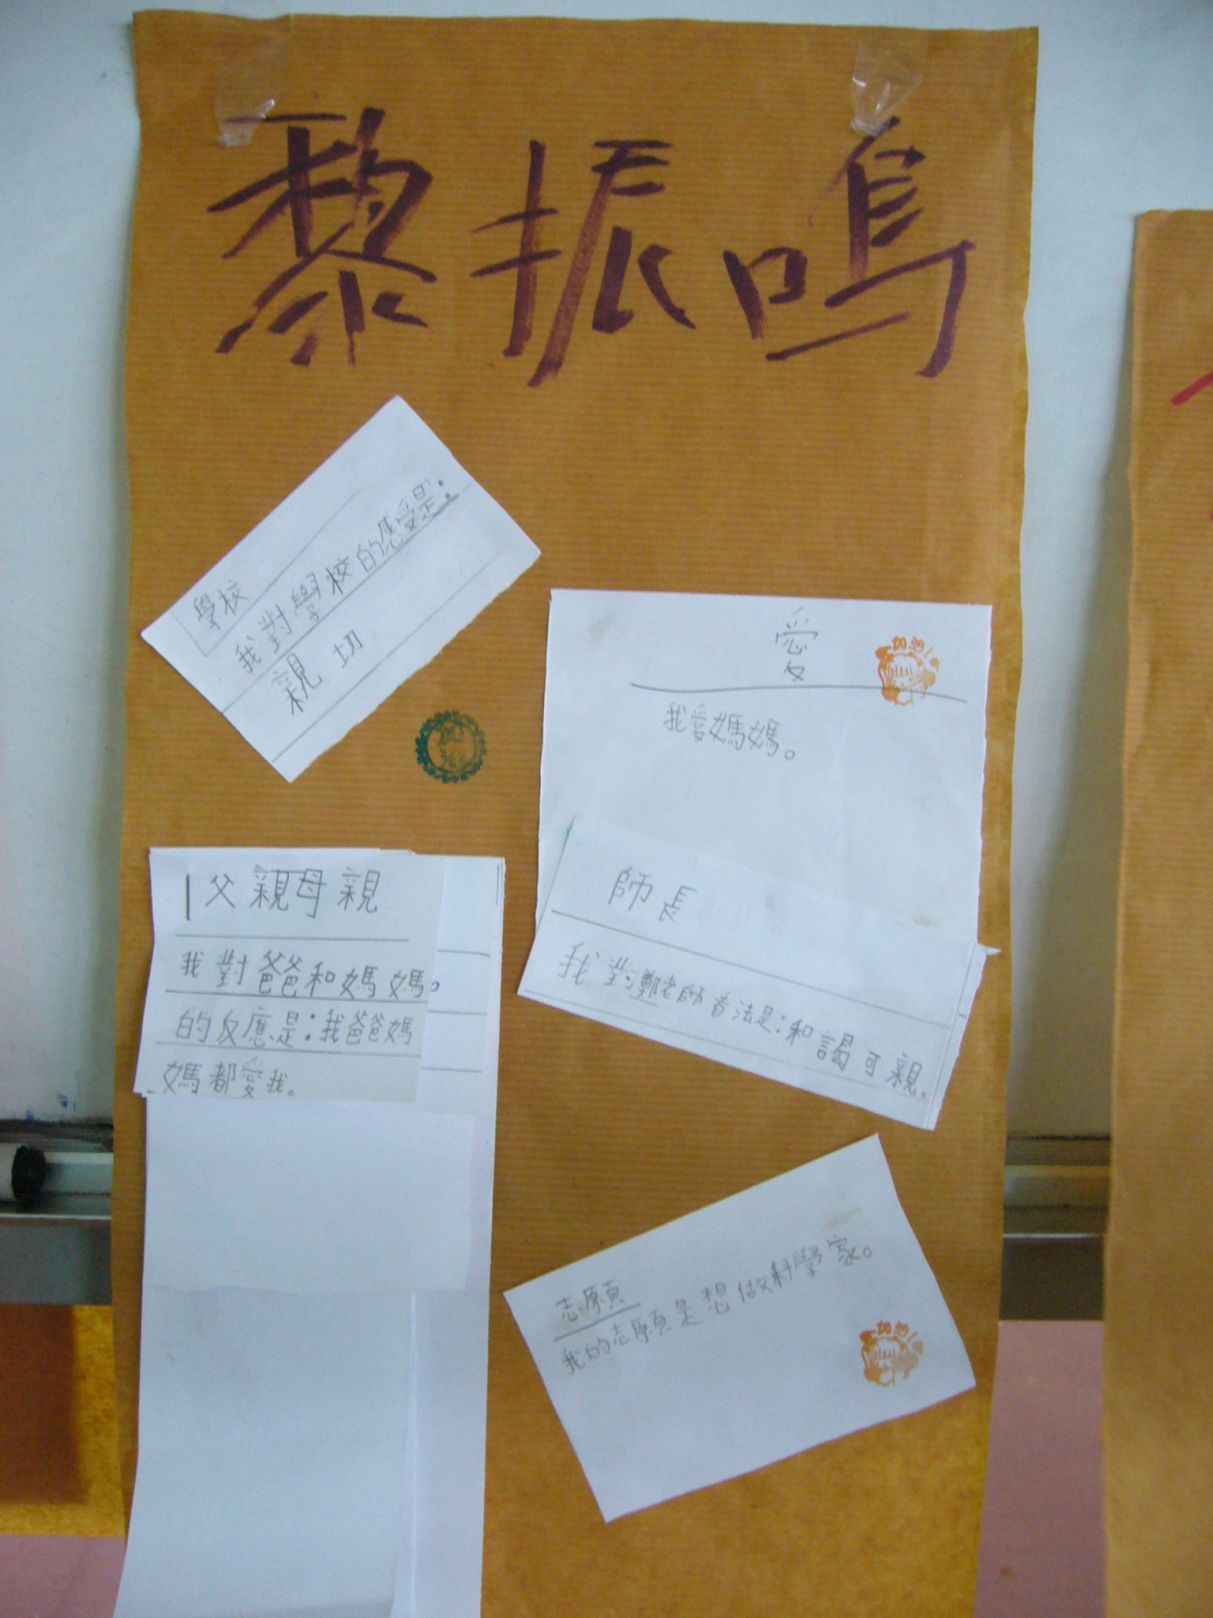 黎振鳴
學校
我對學校的應受是：
親切
愛
加油！
我愛媽媽。
父親母親
我對爸爸和媽媽。
的反應是：我爸爸媽
媽都愛我。
師長
我對鄭老師看法是：和謁可親。
志願
我的志願是想做科學家。
加油！